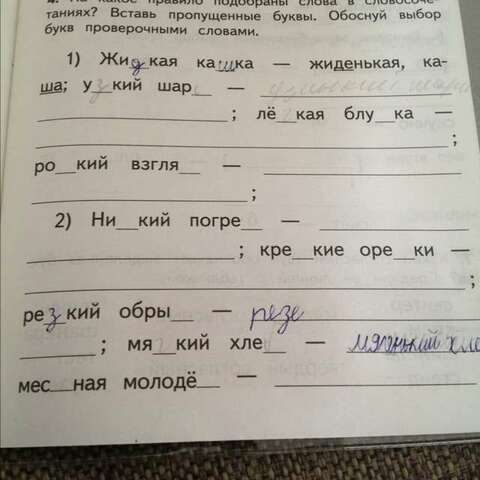 На какое правило подобраны слова в словосоче-
таниях? Вставь пропущенные буквы. Обоснуй выбор
букв проверочными словами.
1) Жидкая кашка — жиденькая, ка-
ша; узкий шар_ —
__________ ; лё_кая блу_ка —
__________ ;
ро__кий взгля__ — __________
__________ ;
2) Ни__кий погре__ — __________
__________ ; кре__кие оре__ки —
__________ ;
резкий обры__ — резе
______ ; мя_кий хле_ —
мес__ная молодё__ — __________